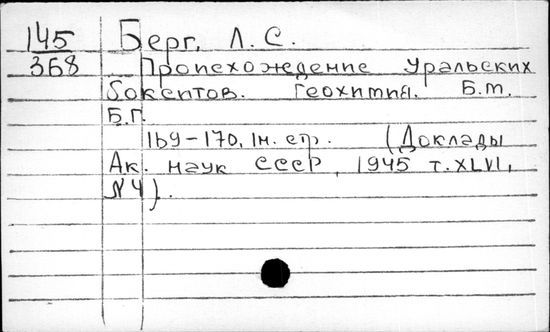 145
368
Берг, Л. С.
Происхождение Уральских
бокситов. Геохимия. Б.м.
Б.г.
169-170, 1н. стр. (Доклады
Ак. наук СССР, 1945 т. XLVI,
N4).